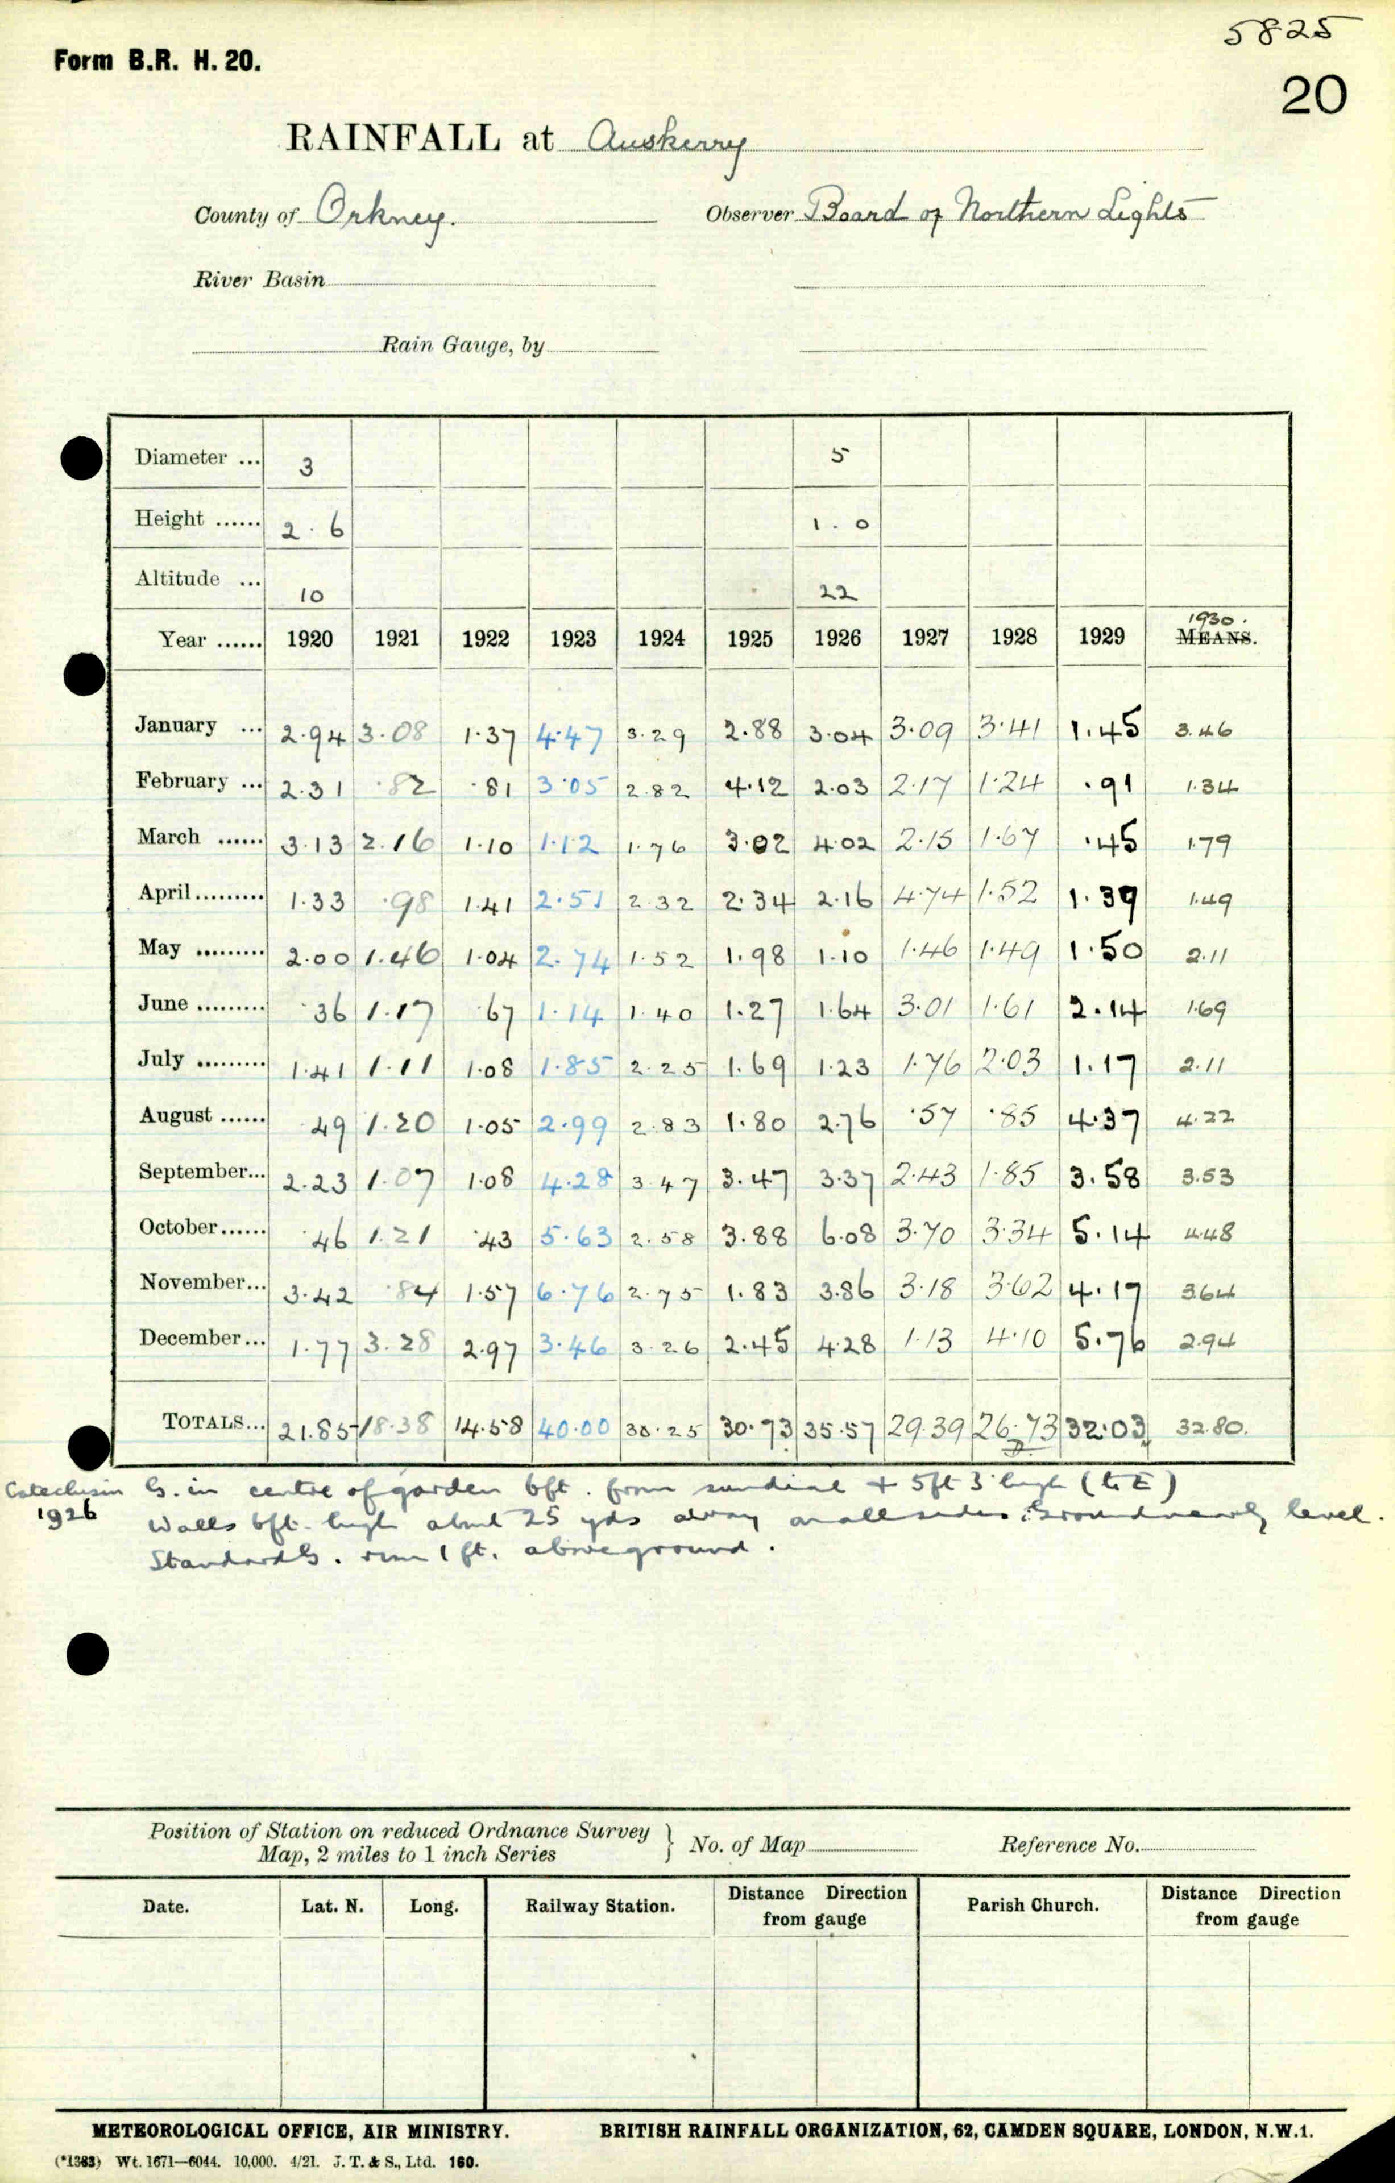 5825
Form B.R. H. 20.
20
RAINFALL at Auskerry
County of Orkney. Observer Board of Northern Lights
River Basin
Rain Gauge, by
Diameter ... 3 5
Height ...... 2.6 1.0
Altitude ... 10 22
1930.
Year ...... 1920 1921 1922 1923 1924 1925 1926 1927 1928 1929 MEANS.
January ... 2.94 3.08 1.37 4.47 3.29 2.88 3.04 3.09 3.41 1.45 3.46
February ... 2.31 .82 .81 3.05 2.82 4.12 2.03 2.17 1.24 .91 1.34
March ...... 3.13 2.16 1.10 1.12 1.76 3.02 4.02 2.15 1.67 .45 1.79
April ......... 1.33 .98 1.41 2.51 2.32 2.34 2.16 4.74 1.52 1.39 1.49
May ......... 2.00 1.46 1.04 2.74 1.52 1.98 1.10 1.46 1.49 1.50 2.11
June ......... .36 1.17 .67 1.14 1.40 1.27 1.64 3.01 1.61 2.14 1.69
July ......... 1.41 1.11 1.08 1.85 2.25 1.69 1.23 1.76 2.03 1.17 2.11
August ...... .49 1.20 1.05 2.99 2.83 1.80 2.76 .57 .85 4.37 4.22
September... 2.23 1.07 1.08 4.28 3.47 3.47 3.37 2.43 1.85 3.58 3.53
October...... .46 1.21 .43 5.63 2.58 3.88 6.08 3.70 3.34 5.14 4.48
November... 3.42 .84 1.57 6.76 2.75 1.83 3.86 3.18 3.62 4.17 3.64
December... 1.77 3.28 2.97 3.46 3.26 2.45 4.28 1.13 4.10 5.76 2.94
TOTALS... 21.85 18.38 14.58 40.00 30.25 30.73 35.57 29.39 26.73 32.03 32.80.
Catechism G. in centre of garden 6ft. from sundial + 5ft 3 high (to E)
1926 Walls 6ft. high about 25 yds away on all sides. Ground nearly level.
Standard G. rim 1 ft. above ground.
Position of Station on reduced Ordnance Survey
Map, 2 miles to 1 inch Series } No. of Map Reference No.
Date. Lat. N. Long. Railway Station. Distance Direction from gauge Parish Church. Distance Direction from gauge
METEOROLOGICAL OFFICE, AIR MINISTRY. BRITISH RAINFALL ORGANIZATION, 62, CAMDEN SQUARE, LONDON, N.W.1.
(*1383) Wt. 1671—6044. 10,000. 4/21. J. T. & S., Ltd. 160.